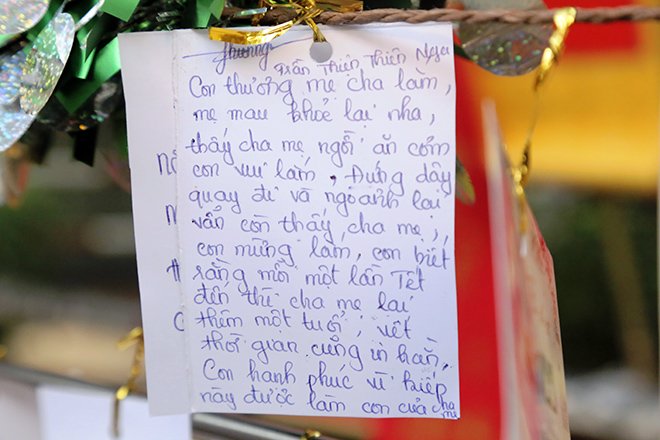 Phương Trần Thiện Thiên Nga
Con thương mẹ cha lắm,
mẹ mau khỏe lại nha,
thấy cha mẹ ngồi ăn cơm
con vui lắm, Đứng dậy
quay đi và ngoảnh lại
vẫn còn thấy cha mẹ,
con mừng lắm, con biết
rằng mỗi một lần Tết
đến thì cha mẹ lại
thêm một tuổi, vết
thời gian cũng in hằn,
Con hạnh phúc vì kiếp
này được làm con của cha
mẹ